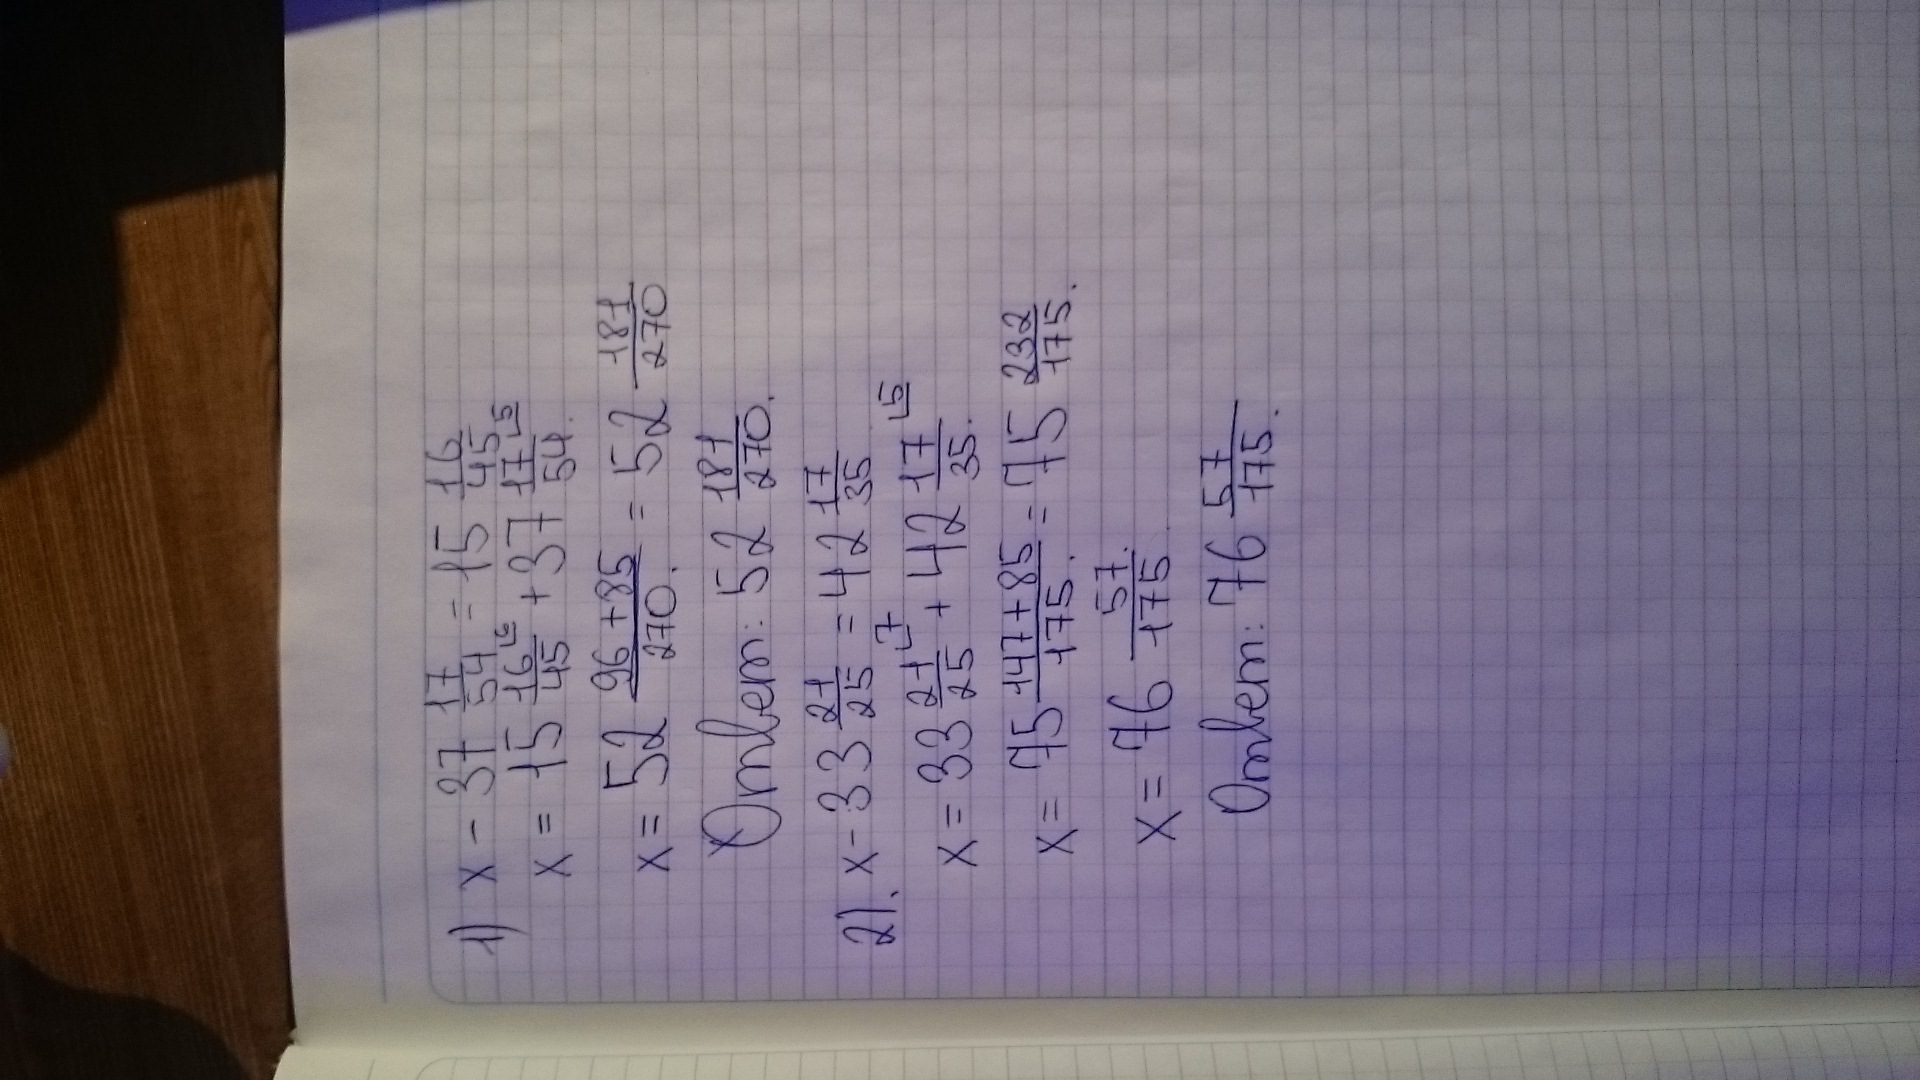 1) x - 37 17/54 = 15 16/45
x = 15 16/45 ⌊6 + 37 17/54 ⌊5
x = 52 (96+85)/270. = 52 181/270
Ответ: 52 181/270.
2). x - 33 21/25 = 42 17/35
x = 33 21/25 ⌊7 + 42 17/35. ⌊5
x = 75 (147+85)/175. = 75 232/175.
x = 76 57/175.
Ответ: 76 57/175.